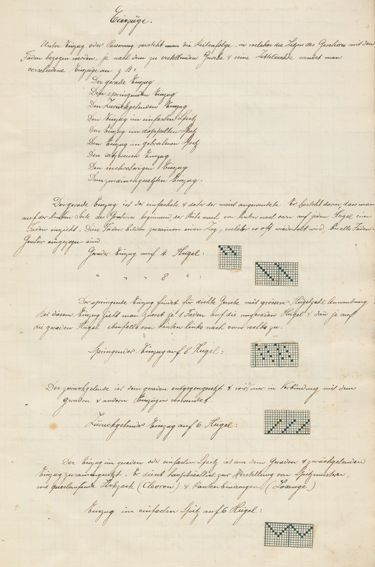 Einzüge.
Unter Einzug oder Passirung versteht man die Reihenfolge, in welcher die Litzen des Geschirrs mit den
Fäden bezogen werden, je nach dem zu erstellenden Gewebe & seine Fadendichte nennt man
verschiedene Einzüge an z. B.:
Der gerade Einzug
Den springenden Einzug
Den Zurückgehenden Einzug
Den Einzug im einfachen Spitz
Den Einzug im doppelten Spitz
Den Einzug im gebrochenen Spitz
Den Einzug
Den mehrchorigen Einzug
Den zusammengesetzten Einzug.
Der gerade Einzug ist der einfachste & daher der meist angewendete. Er besteht darin, dass man
auf der linken Seite des Geschirrs beginnend der Reihe nach von hinten nach vorn auf jeden Flügel ein
Faden einzieht. Diese Fäden bilden zusammen einen Zug, welcher so oft wiederholt wird, bis alle Fäden
eingezogen sind
Gerader Einzug auf 4 Flügel:
" " " 8 " :
Der springende Einzug findet für dichte Gewebe mit grösserer Flügelzahl Anwendung.
Bei diesem Einzug zieht man zuerst je 1 Faden auf die ungeraden Flügel & dann je auf
die geraden Flügel ebenfalls von hinten links nach vorn rechts zu.
Springender Einzug auf 8 Flügel:
Der zurückgehende ist dem geraden entgegengesetzt & wird nur in Verbindung mit dem
Geraden & andern Einzügen verwendet.
Zurückgehender Einzug auf 6 Flügel:
Der Einzug im geraden oder einfachen Spitz ist aus dem Geraden & zurückgehenden
Einzug zusammengesetzt. Er dient hauptsächlich zur Herstellung von Spitzmustern
wie querlaufende Zickzack (Chevron) & Rautenbindungen (Losange)
Einzug im einfachen Spitz auf 6 Flügel: